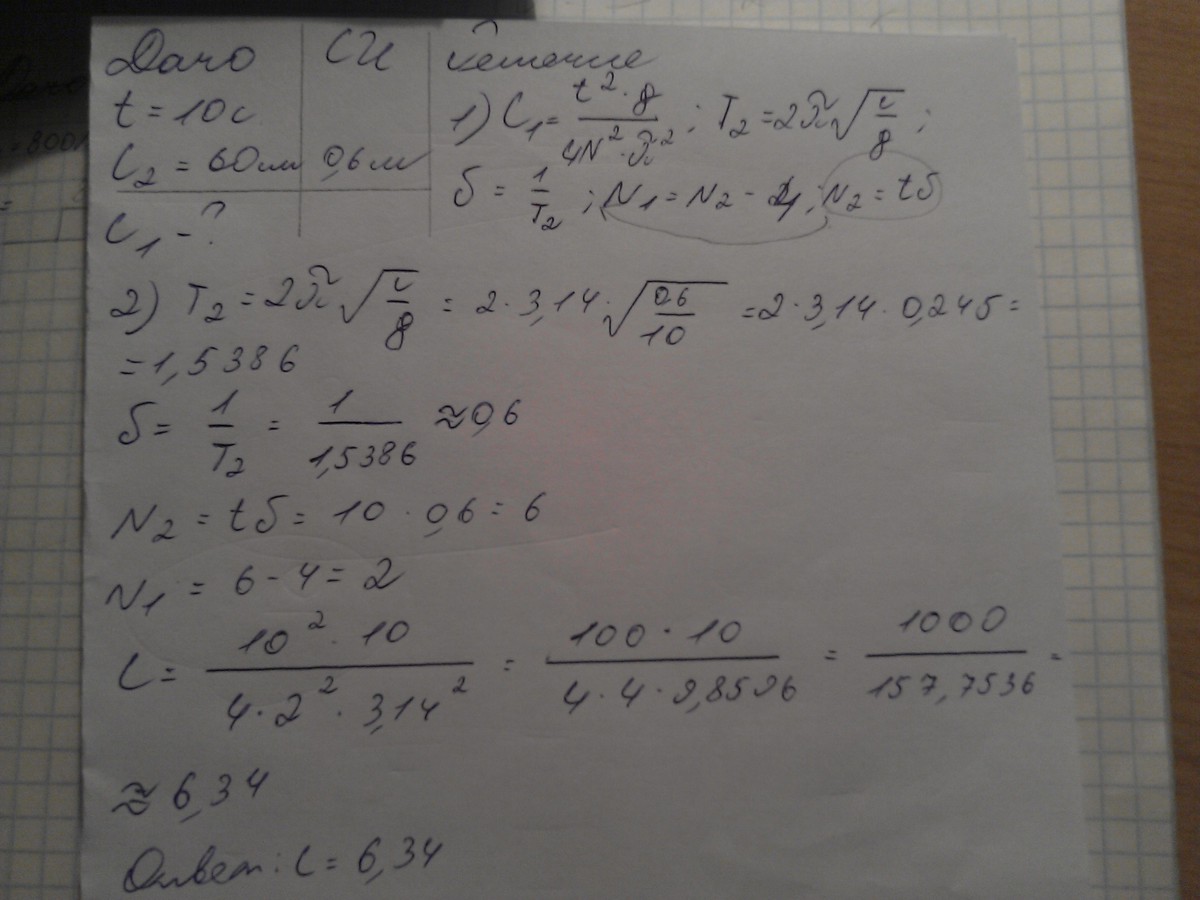 Дано СИ Решение
t = 10 с
l₂ = 60 см 0,6 м
l₁ - ?
1) l₁ = t²·g / 4N²·π² ; T₂ = 2π√(l/g) ;
δ = 1/T₂ ; N₁ = N₂ - 4 ; N₂ = tδ
2) T₂ = 2π√(l/g) = 2·3,14·√(0,6/10) = 2·3,14·0,245 =
= 1,5386
δ = 1/T₂ = 1/1,5386 ≈ 0,6
N₂ = tδ = 10·0,6 = 6
N₁ = 6 - 4 = 2
l = 10²·10 / 4·2²·3,14² = 100·10 / 4·4·9,8596 = 1000 / 157,7536 =
≈ 6,34
Ответ: l = 6,34